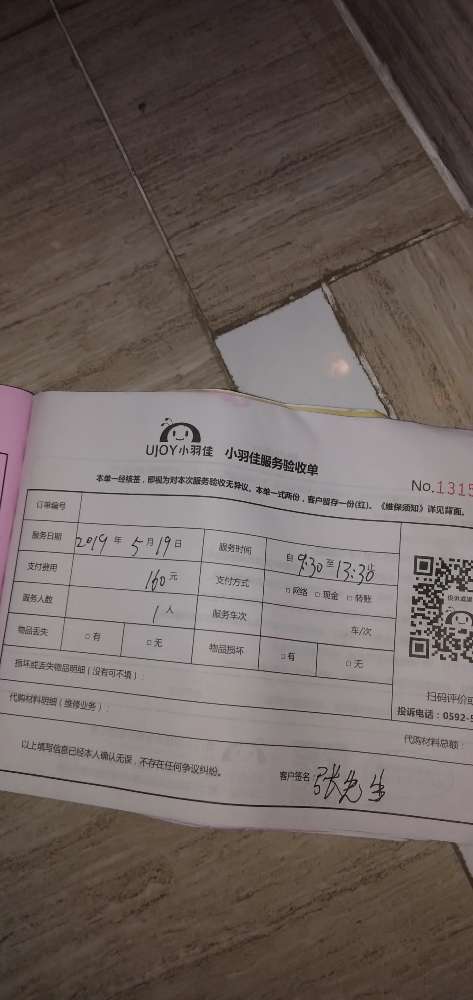 UJOY小羽佳 小羽佳服务验收单
No.1315
本单一经核签，即视为对本次服务验收无异议。本单一式两份，客户留存一份(红)。《维保须知》详见背面。
订单编号
服务日期 2019 年 5 月 19 日 服务时间 自 9:30 至 13:30 止
支付费用 160 元 支付方式 □网络 □现金 □转账
服务人数 1 人 服务车次 车/次
物品丢失 □有 □无 物品损坏 □有 □无
扫码评价或
投诉电话：0592-5
损坏或丢失物品明细（没有可不填）：
代购材料明细（维修业务）： 代购材料总额：
以上填写信息已经本人确认无误，不存在任何争议纠纷。 客户签名：张先生